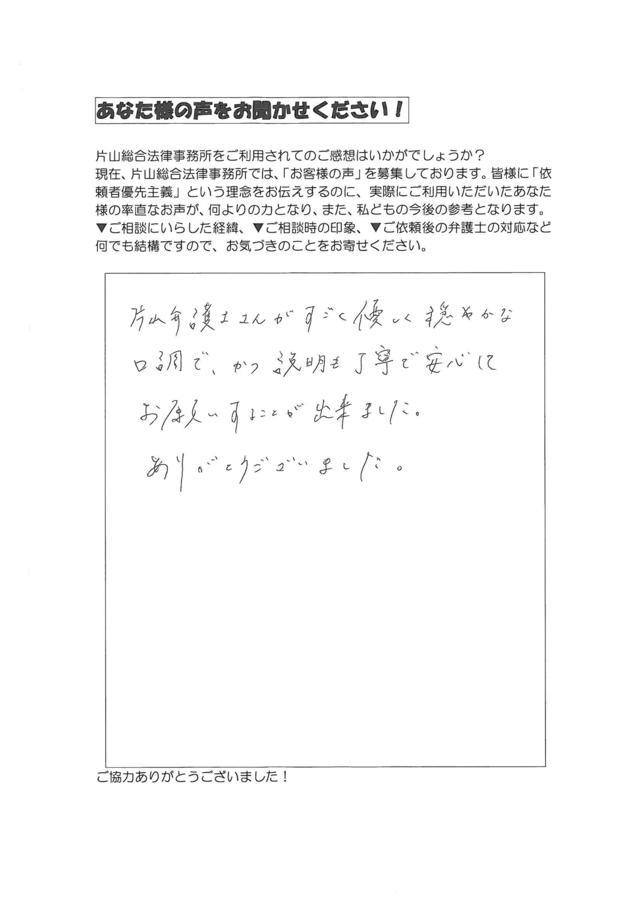 あなた様の声をお聞かせください！
片山総合法律事務所をご利用されてのご感想はいかがでしょうか？
現在、片山総合法律事務所では、「お客様の声」を募集しております。皆様に「依
頼者優先主義」という理念をお伝えするのに、実際にご利用いただいたあなた
様の率直なお声が、何よりの力となり、また、私どもの今後の参考となります。
▼ご相談にいらした経緯、▼ご相談時の印象、▼ご依頼後の弁護士の対応など
何でも結構ですので、お気づきのことをお寄せください。
片山弁護士さんがすごく優しく穏やかな
口調で、かつ説明も丁寧で安心して
お願いすることが出来ました。
ありがとうございました。
ご協力ありがとうございました！